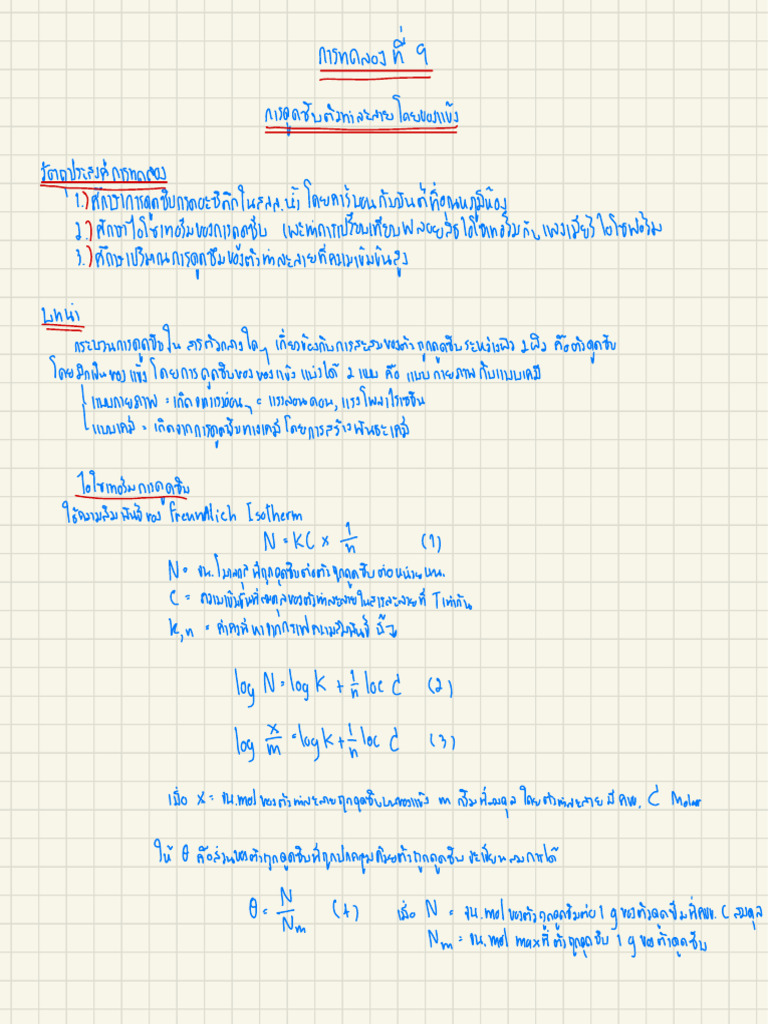 การทดลองที่ 9
การดูดซับตัวทำละลายโดยของแข็ง
วัตถุประสงค์การทดลอง
1.) ศึกษาการดูดซับกรดอะซิติกในสลล.น้ำ โดยคาร์บอนกัมมันต์ที่อุณหภูมิห้อง
2.) ศึกษาไอโซเทอร์มของการดูดซับ และทำการเปรียบเทียบฟลอยลิชไอโซเทอร์มกับแลงเมียร์ไอโซเทอร์ม
3.) ศึกษาปริมาณการดูดซับของตัวทำละลายที่ความเข้มข้นสูง
บทนำ
กระบวนการดูดซับใน สารตัวกลางใดๆ เกี่ยวข้องกับการสะสมของตัวถูกดูดซับระหว่างผิว 2 ผิว คือตัวดูดซับ
โดยมักเป็นของแข็ง โดยการดูดซับของของแข็ง แบ่งได้ 2 แบบ คือ แบบกายภาพกับแบบเคมี
แบบกายภาพ = เกิดจากแรงอ่อนๆ = แรงลอนดอน, แรงโพลาไรเซชัน
แบบเคมี = เกิดจากการดูดซับทางเคมี โดยการสร้างพันธะเคมี
ไอโซเทอร์มการดูดซับ
ใช้ความสัมพันธ์ของ Freundlich Isotherm
N = KC × 1/n (1)
N = จน.โมเลกุลที่ถูกดูดซับต่อตัวถูกดูดซับต่อหน่วยนน.
C = ความเข้มข้นที่สมดุลของตัวทำละลายในสารละลายที่ T เท่ากัน
k,n = ค่าคงที่หาจากกราฟความสัมพันธ์นี้
log N = log K + 1/n loc C (2)
log x/m = log k + 1/n loc C (3)
เมื่อ x = จน.mol ของตัวทำละลายถูกดูดซับบนของแข็ง m กรัมที่สมดุล โดยตัวทำละลายมี คขข. C Molar
ให้ θ คือส่วนของตัวถูกดูดซับที่ถูกปกคลุมด้วยตัวถูกดูดซับ จะเขียนสมการได้
θ = N/Nm (4) เมื่อ N = จน.mol ของตัวถูกดูดซับต่อ 1 g ของตัวดูดซับที่คขข. C สมดุล
Nm = จน.mol max ที่ตัวถูกดูดซับ 1 g ของตัวดูดซับ